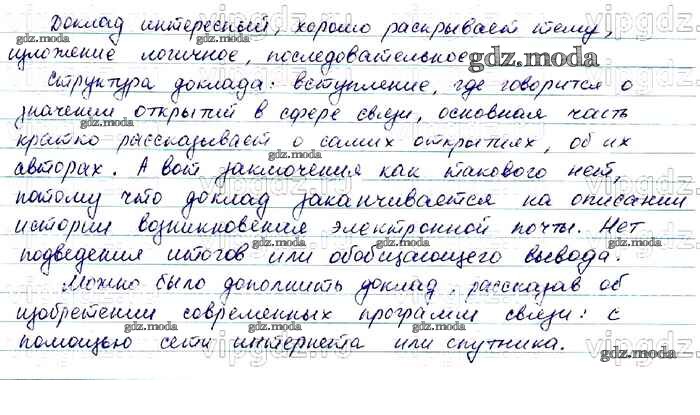 Доклад интересный, хорошо раскрывает тему,
изложение логичное, последовательное.
Структура доклада: вступление, где говорится о
значении открытий в сфере связи, основная часть
кратко рассказывает о самих открытиях, об их
авторах. А вот заключения как такового нет,
потому что доклад заканчивается на описании
истории возникновения электронной почты. Нет
подведения итогов или обобщающего вывода.
Можно было дополнить доклад, рассказав об
изобретении современных программ связи: с
помощью сети интернета или спутника.
gdz.moda
vipgdz.ru